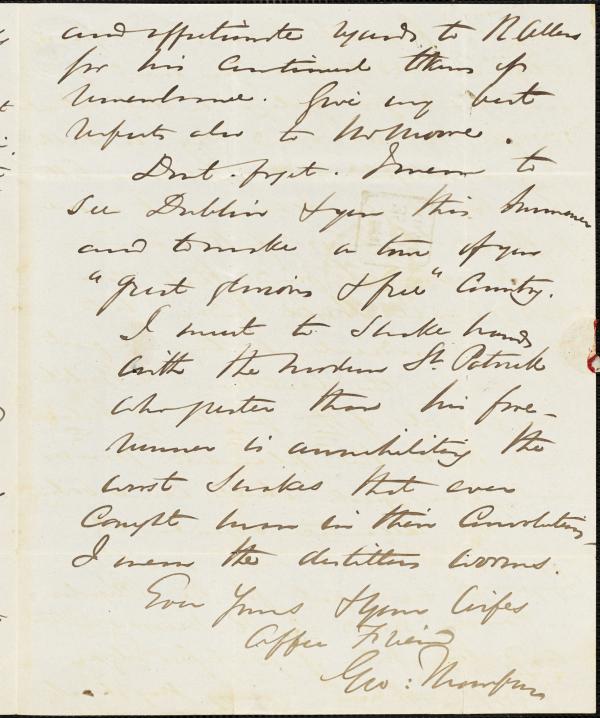 and affectionate regards to R Allen
for his continued tokens of
remembrance. Give my best
respects also to Mr Moore.
Dont forget. I mean to
see Dublin & you this Summer
and to make a tour of your
"great glorious & free" Country.
I want to Shake hands
with the modern St. Patrick
who greater than his fore-
runner is annihilating the
worst Snakes that ever
caught man in their Convolutions
I mean the distillers worms.
Ever Yours & your Wifes
Affec Friend
Geo: Thompson